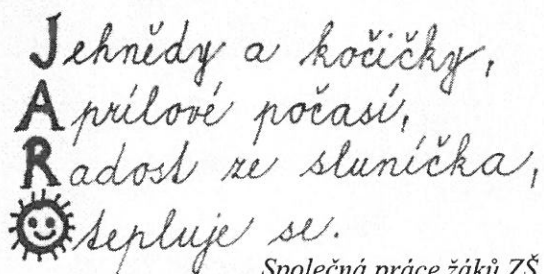 Jehnědy a kočičky,
Aprílové počasí,
Radost ze sluníčka,
Otepluje se.
Společná práce žáků ZŠ